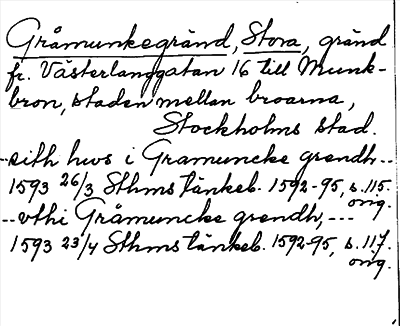 Gråmunkegränd, Stora, gränd
fr. Västerlånggatan 16 till Munk-
bron, staden mellan broarna,
Stockholms stad.
--sith hws i Gramuncke grendh--
1593 26/3 Sthms tänkeb. 1592-95, s. 115.
orig.
--vthi Gråmuncke grendh, ---
1593 23/4 Sthms tänkeb. 1592-95, s. 117.
orig.